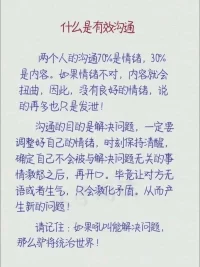 什么是有效沟通
两个人的沟通70%是情绪，30%
是内容。如果情绪不对，内容就会
扭曲，因此，没有良好的情绪，说
的再多也只是发泄！
沟通的目的是解决问题，一定要
调整好自己的情绪，时刻保持清醒，
确定自己不会被与解决问题无关的事
情激怒之后，再开口。毕竟让对方无
语或者生气，只会激化矛盾。从而产
生新的问题！
请记注：如果吼叫能解决问题，
那么驴将统治世界！